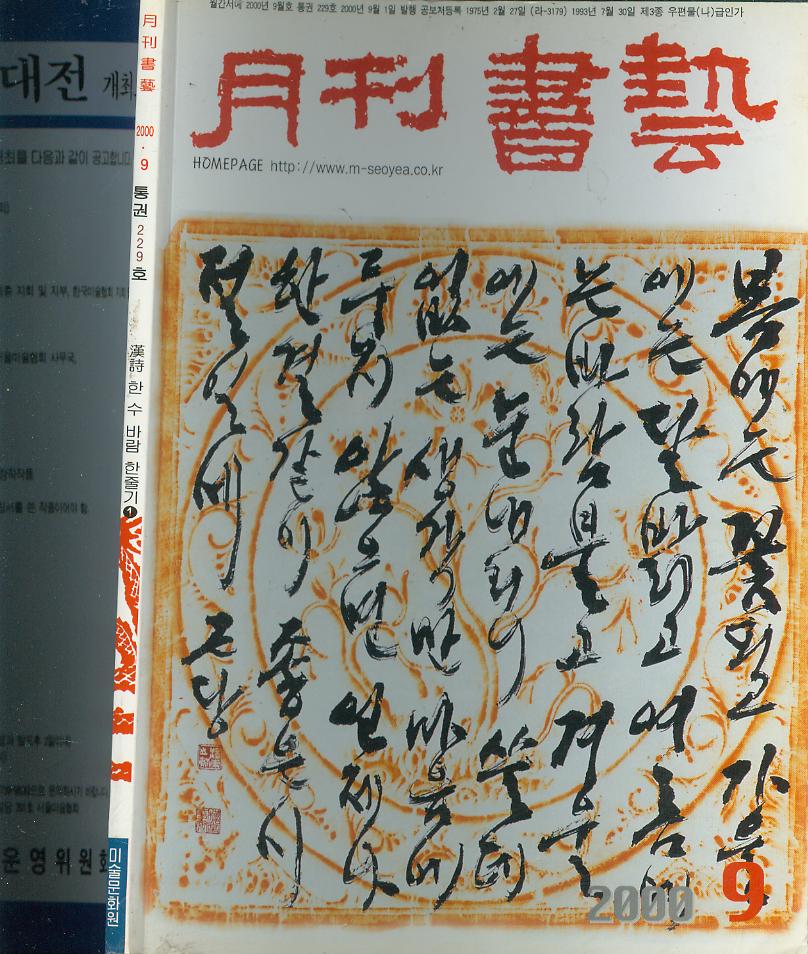 월간서예 2000년 9월호 통권 229호 2000년 9월 1일 발행 공보처등록 1975년 2월 27일 (라-3179) 1993년 7월 30일 제3종 우편물(나)급인가
月刊書藝
HOMEPAGE http://www.m-seoyea.co.kr
봄에는 꽃피고 가을
에는 달 여름에
는 바람 불고 겨울
에는 눈 내리니 쓸데
없는 생각만 마음에
두지 않으면 언제나
한결같이 좋은 시
절일세 근당
2000 9
月刊書藝 2000·9 통권 229호 漢詩 한 수 바람 한줄기 1
미술문화원
대전 개최
최를 다음과 같이 공고합니다
지회 및 지부, 한국미술협회
미술협회 사무국,
창작작품
운영위원회